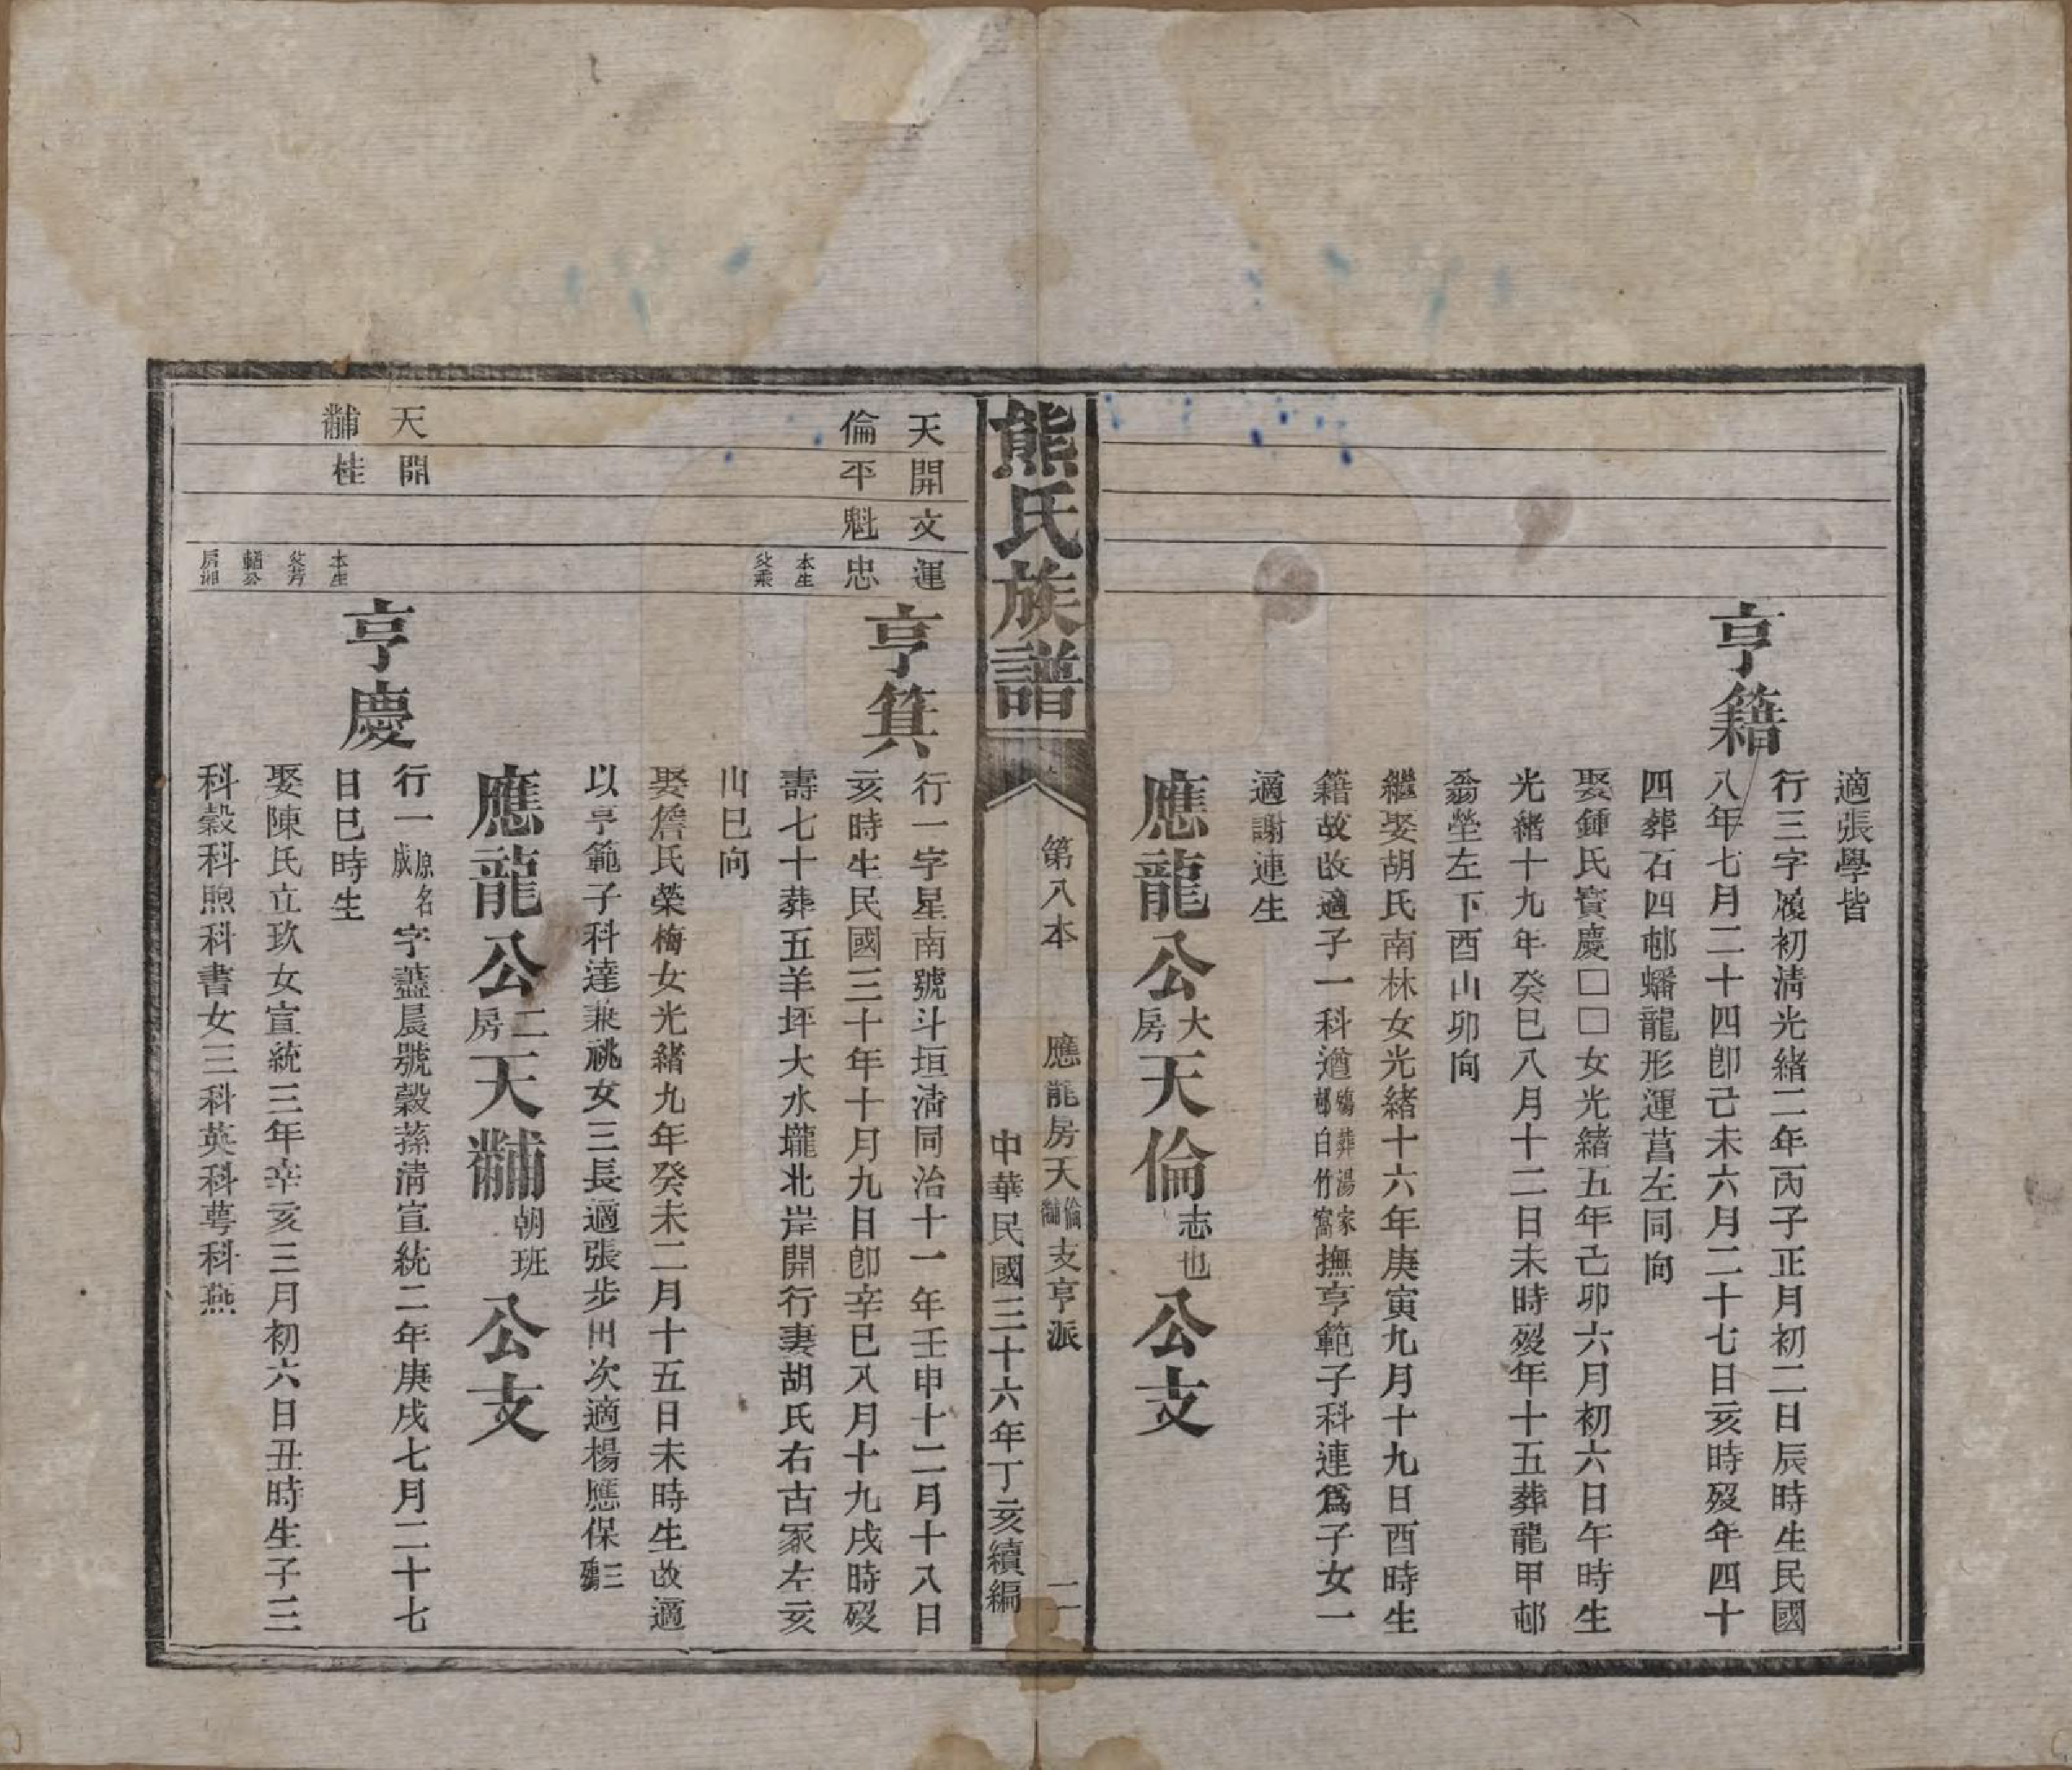 適張學皆
亨籍
行三字履初淸光緒二年丙子正月初二日辰時生民國
八年七月二十四卽己未六月二十七日亥時歿年四十
四葬石四邨蟠龍形運菖左同向
娶鍾氏寶慶□□女光緒五年己卯六月初六日午時生
光緒十九年癸巳八月十二日未時歿年十五葬龍甲邨
翁塋左下酉山卯向
繼娶胡氏南林女光緒十六年庚寅九月十九日酉時生
籍故改適子一科遒殤葬湯家邨白竹窩撫亨範子科連爲子女一
適謝連生
應龍公大房天倫志也公支
熊氏族譜
第八本
應龍房天倫黼支亨派
二
中華民國三十六年丁亥續編
天開文運
倫平魁忠
本生
父乘
亨箕
行一字星南號斗垣淸同治十一年壬申十二月十八日
亥時生民國三十年十月九日卽辛巳八月十九戌時歿
壽七十葬五羊坪大水壠北岸開行妻胡氏右古冢左亥
山巳向
娶詹氏榮梅女光緒九年癸未二月十五日未時生故適
以亨範子科達兼祧女三長適張步田次適楊應保三殤
應龍公二房天黼朝班公支
天開
黼桂
本生
父芳
輔公
房湘
亨慶
行一原名成字藎晨號穀蓀淸宣統二年庚戌七月二十七
日巳時生
娶陳氏立玖女宣統三年辛亥三月初六日丑時生子三
科穀科煦科書女三科英科萼科燕